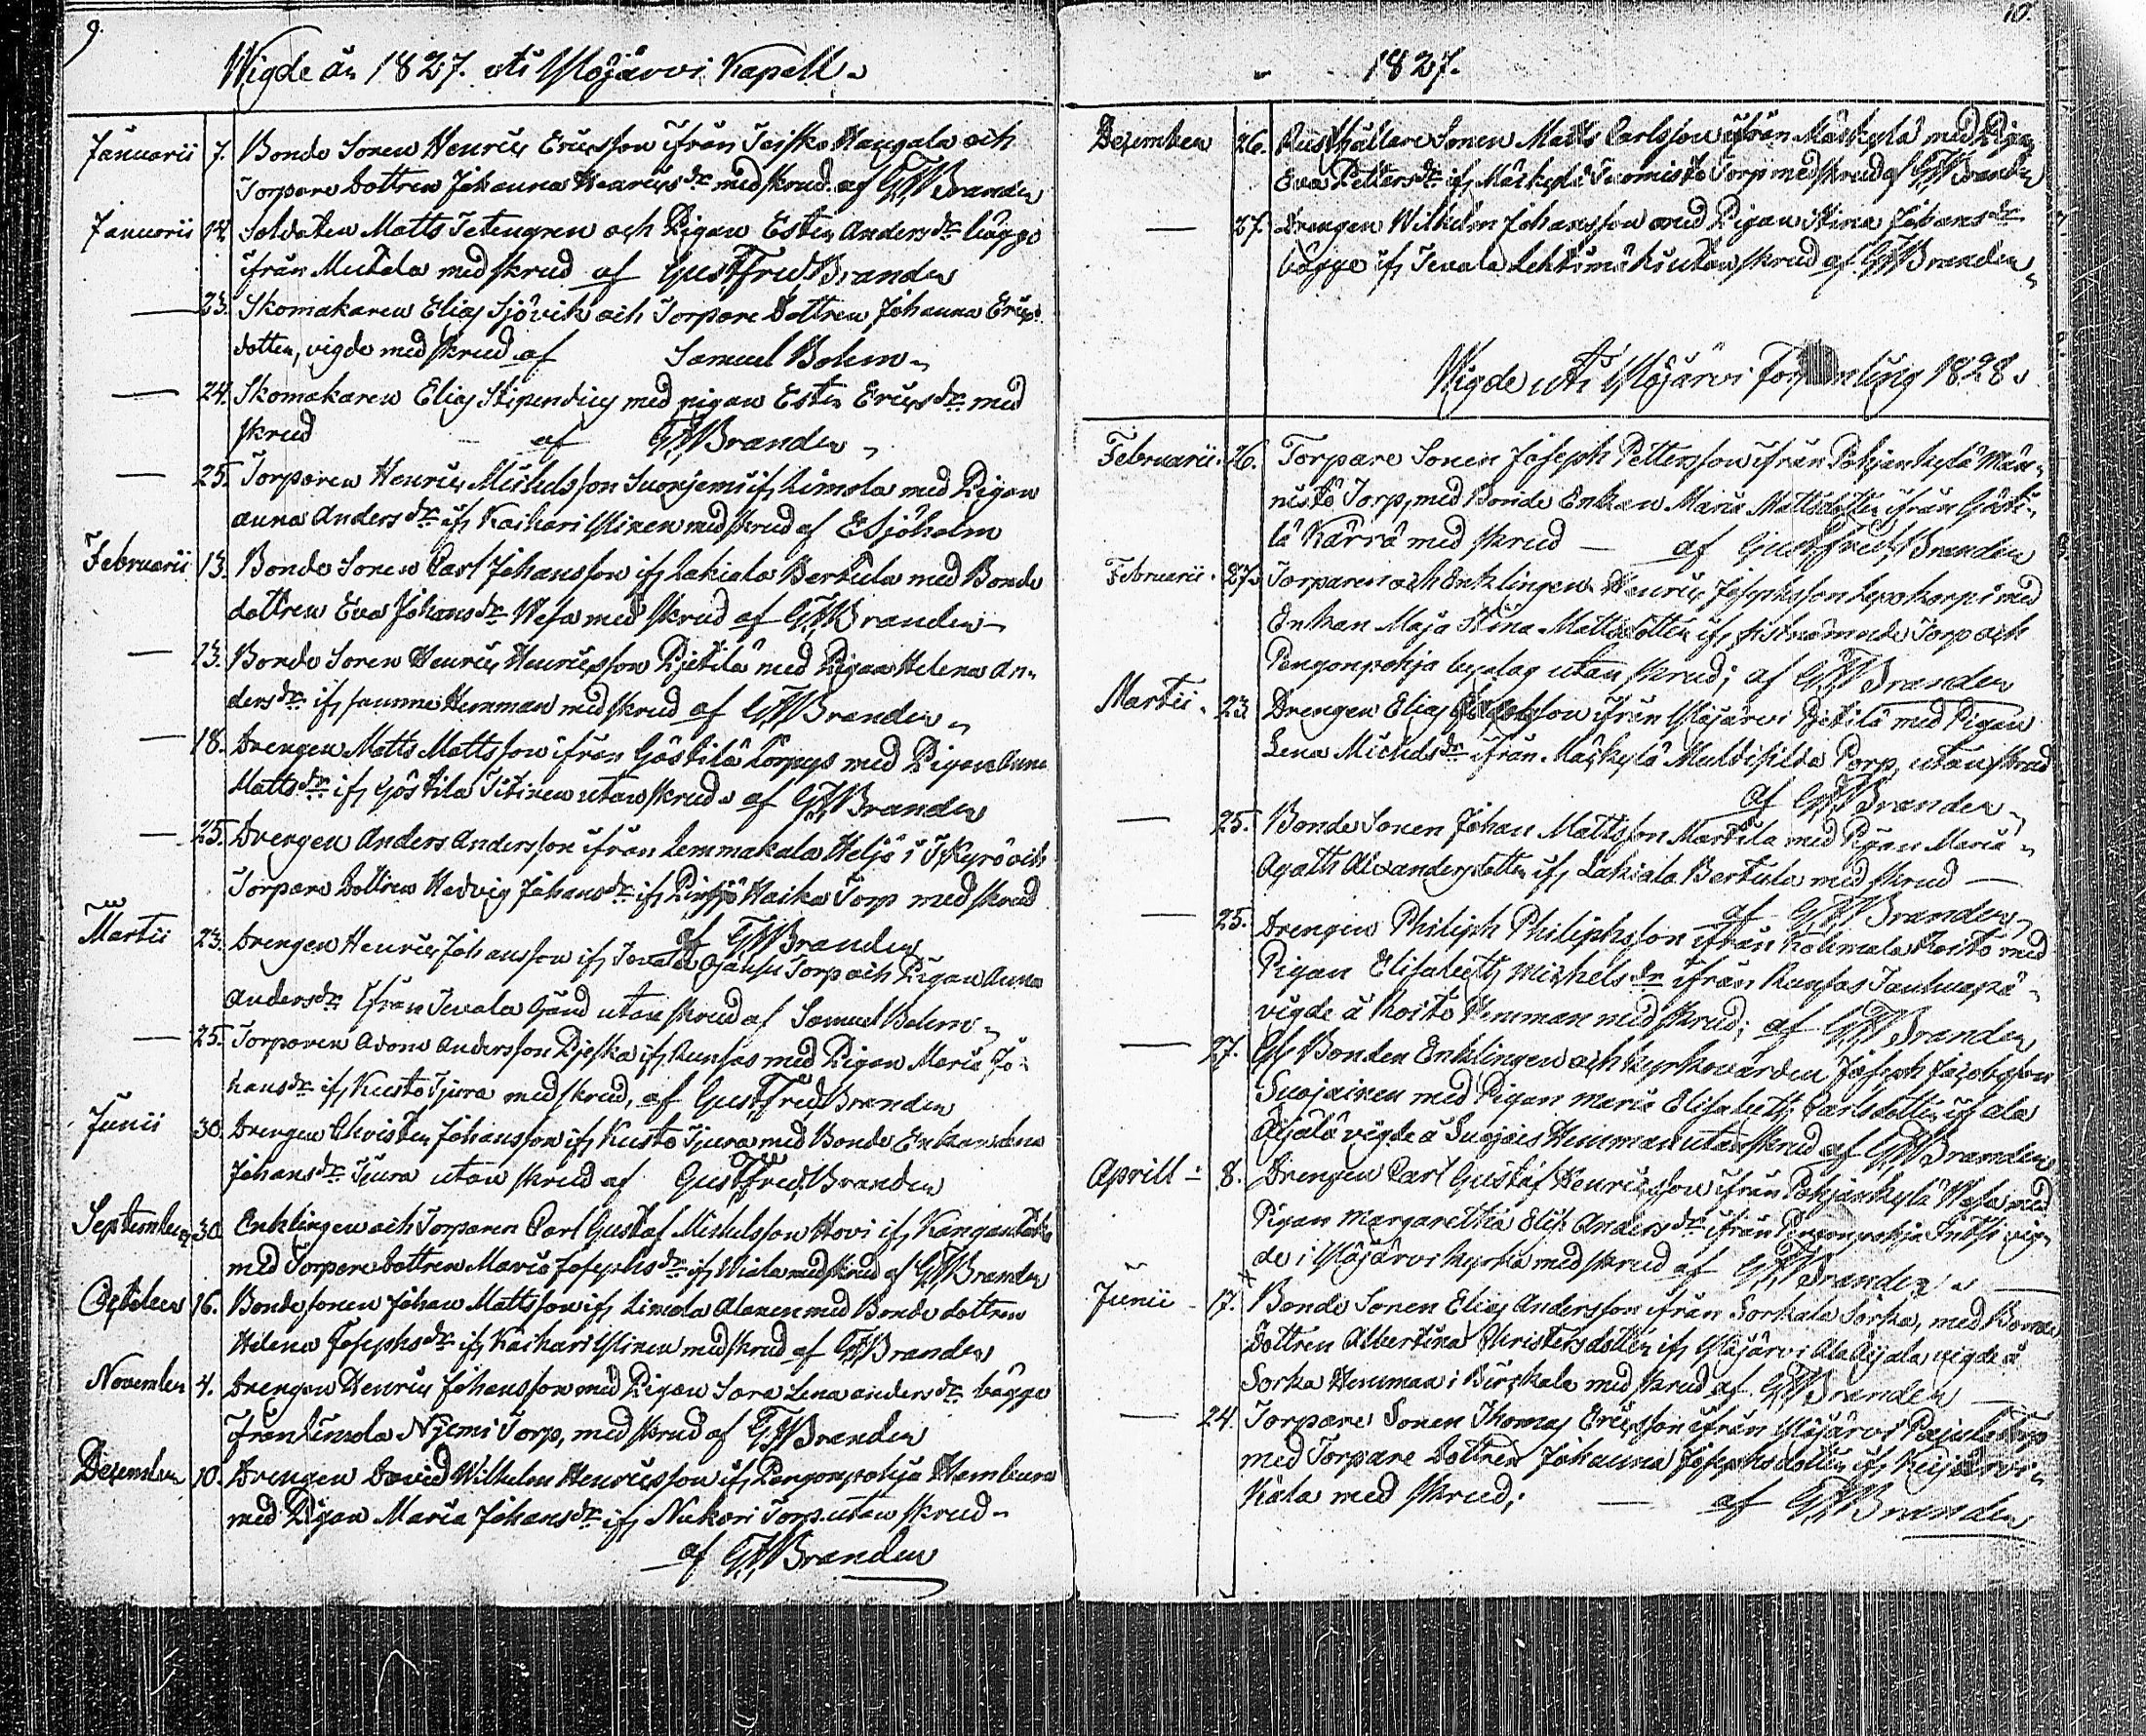 9.
Wigde år 1827. uti Ylöjärvi Kapell.
Januarii 7. Bonde Sonen Henric Ericsson ifrån Teisko Kaugala och
Torpare Dottren Johanna Henricsdr med skrud. af GFBrander
Januarii 14. Soldaten Matts Tetengren och Pigan Ester Andersdr bägge
ifrån Mutala med skrud af Gust Fred Brander
— 23. Skomakaren Elias Sjövik och Torpare Dottren Johanna Erics
dotter, vigde med skrud af Samuel Bohm
— 24. Skomakaren Elias Stipendius med pigan Ester Ericsdr med
skrud af GFBrander
— 25. Torparen Henric Michelsson Suonjemi ifs Limola med Pigan
Anna Andersdr ifs Kaihari Ylinen med skrud af ESjöholm
Februarii 13. Bonde Sonen Carl Johansson ifs Lakiala Bertula med Bonde
dottren Eva Johansdr Wesa med skrud af GFBrander
— 13. Bonde Sonen Henric Henricsson Pjetilä med Pigan Helena An-
dersdr ifs samma Hemman med skrud af GFBrander
— 18. Drengen Matts Mattsson ifrån Göstilä Körpys med Pigan Anna
Mattsdr ifs Göstilä Titinen utan skrud af GFBrander
— 25. Drengen Anders Andersson ifrån Lemmakala Heljö i Ikyrö och
Torpare Dottren Hedvig Johansdr ifs Haika Torp med skrud
af GFBrander
Martii 23. Drengen Henric Johansson ifs Ojansu Torp och Pigan Anna
Andersdr ifrån Tevala Gård utan skrud af Samuel Bohm
— 25. Torparen Adam Andersson Pjeska ifs Runsas med Pigan Maria Jo-
hansdr ifs Kusto Tjura med skrud, af Gust Fred Brander
Junii 30. Drengen Christer Johansson ifs Kusto Tjura med Bonde Enkan Lena
Johansdr Tjura utan skrud af Gust Fred Brander
September 30. Enklingen och Torparen Carl Gustaf Michelsson Hovi ifs Kangantaka
med Torpare Dottren Maria Josephsdr ifs Wiala med skrud af GFBrander
October 16. Bonde sonen Johan Mattsson ifs Limola Alanen med Bonde dottren
Helena Josephsdr ifs Kaihari Ylinen med skrud af GFBrander
November 4. Drengen Henric Johansson med Pigan Sara Lena Andersdr bägge
ifrån Limola Nijemi Torp, med skrud af GFBrander
December 10. Drengen David Wilhelm Henricsson ifs Pengonpohja
med Pigan Maria Johansdr ifs Nukari Torp utan skrud
af GFBrander
10.
1827.
December 26. Rusthållare Sonen Matts Carlsson ifrån Mäskylä med Pigan
Eva Pettersdr ifs Mäskylä Tuomisto Torp med skrud af GFBrander
— 27. Drengen Wilhelm Johansson med Pigan Stina Johansdr
bägge ifs Tevala Lehtimäki utan skrud af GFBrander
Wigde uti Ylöjärvi Församling 1828.
Februarii 26. Torpare Sonen Joseph Pettersson ifrån Pohjankylä Män-
nistö Torp, med Bonde Enkan Maria Mattsdotter ifrån Gösti-
lä Kärrä med skrud — af Gust Fred Brander
Februarii 27. Torparen och Enklingen Henric Josephsson Lepokorpi med
Enkan Maja Stina Mattsdotter ifs sistnämnde Torp och
Pengonpohja bys lag utan skrud; af GFBrander
Martii 23. Drengen Elias ifrån Ylöjärvi Pjetilä med Pigan
Lena Michelsdr ifrån Mäskylä Multisilda Torp, utan skrud
af GFBrander
— 25. Bonde Sonen Johan Mattsson Martila med Pigan Maria
Agatha Alexandersdotter ifs Lakiala Bertula med skrud —
af GFBrander
— 25. Drengen Philiph Philiphsson ifrån Kolmala Koito med
Pigan Elisabeth Michelsdr ifrån Runsas
vigde å Koito Hemman med skrud; af GFBrander
— 27. Bonden Enklingen och Kyrkovärden Joseph Jacobsson
Suojainen med Pigan Maria Elisabeth Carlsdotter ifs Ala
Äijälä vigde å Suojais Hemman utan skrud af GFBrander
Aprill 8. Drengen Carl Gustaf Henricsson ifrån Pohjankylä Wesa med
Pigan Margaretha Elis Andersdr ifrån Pengonpohja vig-
de i Ylöjärvi kyrka med skrud af GFBrander
Junii 17. Bonde Sonen Elias Andersson ifrån Sorkala Sorka, med Bonde
Dottren Albertina Christersdotter ifs Ylöjärvi Ala Äijälä, vigde å
Sorka Hemman i Birkala med skrud af GFBrander
— 24. Torpare Sonen Thomas Ericsson ifrån Ylöjärvi Torp
med Torpare Dottren Johanna Josephsdotter ifs Keijärvi
Kala med skrud; — af GFBrander